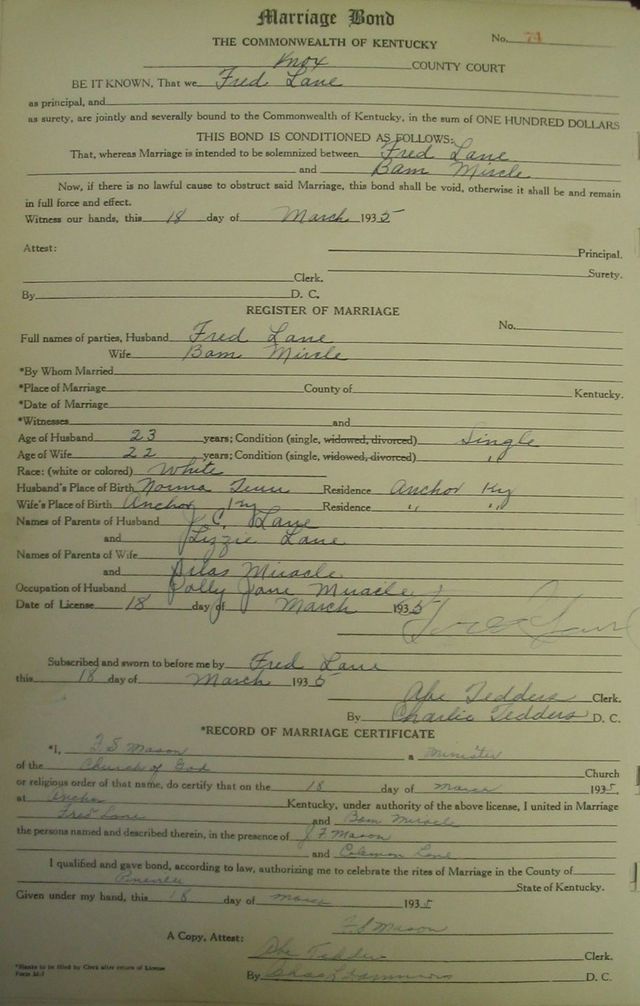 Marriage Bond
THE COMMONWEALTH OF KENTUCKY No. 74
Knox COUNTY COURT
BE IT KNOWN, That we Fred Lane
as principal, and
as surety, are jointly and severally bound to the Commonwealth of Kentucky, in the sum of ONE HUNDRED DOLLARS
THIS BOND IS CONDITIONED AS FOLLOWS:
That, whereas Marriage is intended to be solemnized between Fred Lane
and Bam Mircle
Now, if there is no lawful cause to obstruct said Marriage, this bond shall be void, otherwise it shall be and remain
in full force and effect.
Witness our hands, this 18 day of March 1935
Attest: Principal.
Clerk. Surety.
By D. C.
REGISTER OF MARRIAGE
No.
Full names of parties, Husband Fred Lane
Wife Bam Mircle
*By Whom Married
*Place of Marriage County of Kentucky.
*Date of Marriage
*Witnesses and
Age of Husband 23 years; Condition (single, widowed, divorced) Single
Age of Wife 22 years; Condition (single, widowed, divorced) "
Race: (white or colored) White
Husband's Place of Birth Norma Tenn Residence Anchor Ky
Wife's Place of Birth Anchor Ky Residence " "
Names of Parents of Husband J. C. Lane
and Lizzie Lane
Names of Parents of Wife
and Silas Miracle
Occupation of Husband Polly Jane Miracle
Date of License 18 day of March 1935
Subscribed and sworn to before me by Fred Lane
this 18 day of March 1935
Abe Tedders Clerk.
By Charlie Tedders D. C.
*RECORD OF MARRIAGE CERTIFICATE
*I, F S Mason a Minister
of the Church of God Church
or religious order of that name, do certify that on the 18 day of March 1935
at Kentucky, under authority of the above license, I united in Marriage
Fred Lane and Bam Miracle
the persons named and described therein, in the presence of J F Mason
and Coleman Lane
I qualified and gave bond, according to law, authorizing me to celebrate the rites of Marriage in the County of
State of Kentucky.
Given under my hand, this 18 day of March 1935
F S Mason
A Copy, Attest: Abe Tedders Clerk.
By D. C.
*Blanks to be filled by Clerk after return of License